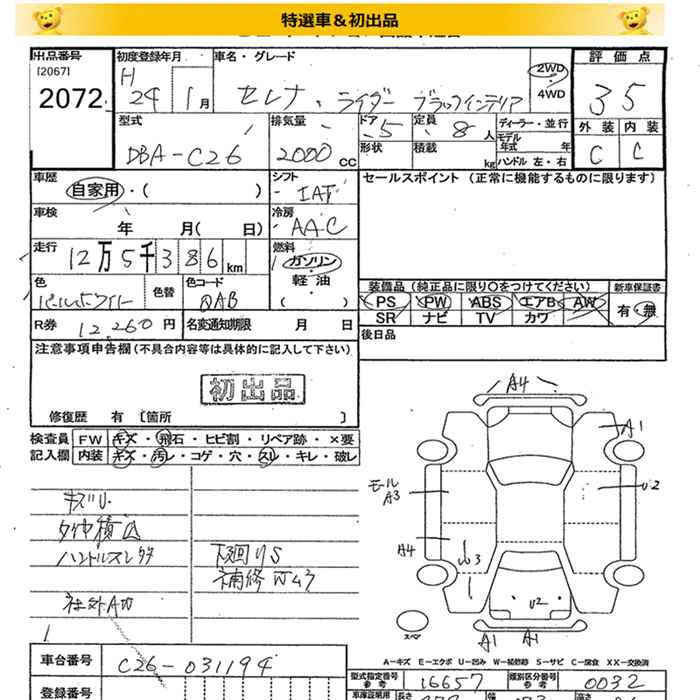 特選車＆初出品
出品番号 初度登録年月 車名・グレード 評価点
[2067]
2072 H 24 1月 セレナ ライダー ブラックインテリア 2WD・4WD 3 5
型式 排気量 ドア 5 定員 8人 ディーラー・並行 外装 内装
DBA-C26 2000cc 形状 積載 kg モデル年式 年 C C
ハンドル 左・右
車歴 シフト セールスポイント（正常に機能するものに限ります）
自家用・( ) IAT
車検 冷房
年 月( 日) AAC
走行 燃料
12万5千386km ガソリン・軽油・( )
色 色替 色コード 装備品（純正品に限り○をつけてください） 新車保証書
QAB PS PW ABS エアB AW 有・無
SR ナビ TV カワ
R券 12,260円 名変通知期限 月 日 後日品
注意事項申告欄（不具合内容等は具体的に記入して下さい）
初出品
修復歴 有 [箇所 ]
検査員 FW キズ・飛石・ヒビ割・リペア跡・×要
記入欄 内装 キズ・汚レ・コゲ・穴・スレ・キレ・破レ
キズU
下廻りS
社外AW
A4
A1
モール
A3
U2
A4
U3
U2
スペア
A1 A1
A-キズ E-エクボ U-凹み W-補修跡 S-サビ C-腐食 XX-交換済
車台番号 C26-031194
型式指定番号 参考 16657 類別区分番号 参考 0032
登録番号 車庫証明用 長さ 幅 高さ